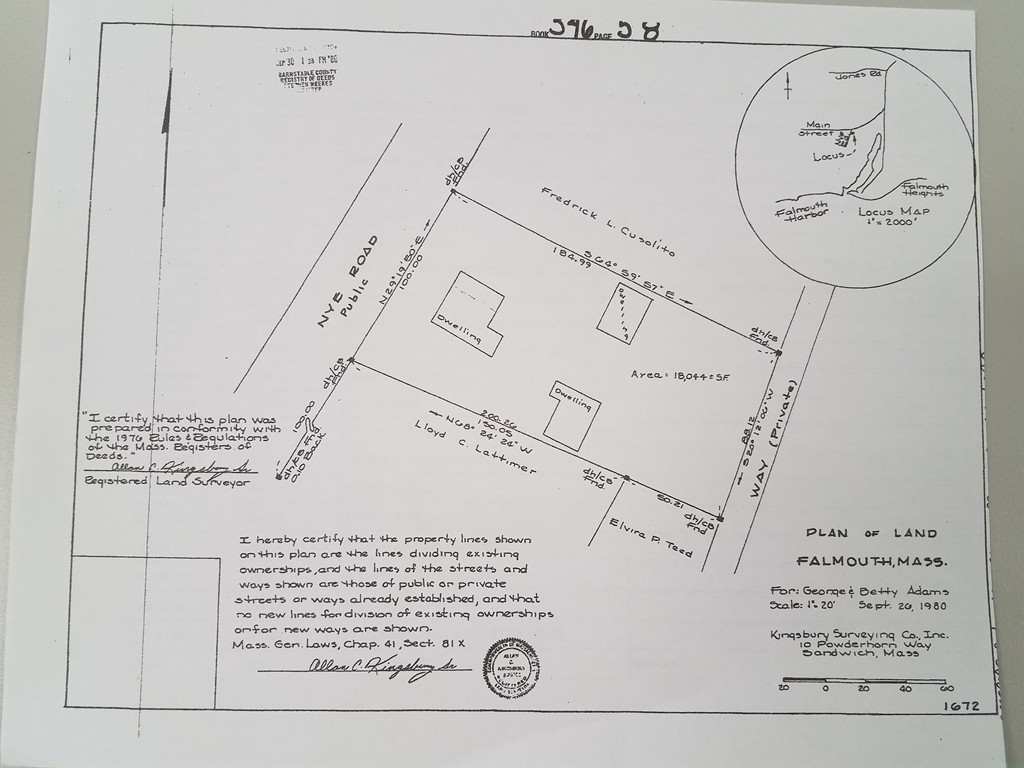 BOOK 346 PAGE 58
1 28 PM '80
BARNSTABLE COUNTY
REGISTRY OF DEEDS
Jones Rd
Main
Street
Locus
Falmouth
Heights
Falmouth
Harbor
LOCUS MAP
1"= 2000'
dh/CB
Fnd.
Fredrick L. Cusolito
S 64° 59' 57" E
184.99
NYE ROAD
Public
N 29° 19' 50" E
100.00
Dwelling
Dwelling
dh/CB
Fnd
Area = 18,044 ± S.F.
Dwelling
dh/CB
Fnd.
200.26
150.05
N 68° 24' 24" W
Lloyd C. Lattimer
88.12
S 20° 12' 00" W
WAY (Private)
100.00
dh/CB Fnd.
0.10 Back
dh/CB
Fnd.
50.21
dh/CB
Fnd
Elvira P. Teed
"I certify that this plan was
prepared in conformity with
the 1976 Rules & Regulations
of the Mass. Registers of
Deeds."
Allan C. Kingsbury Sr
Registered Land Surveyor
I hereby certify that the property lines shown
on this plan are the lines dividing existing
ownerships, and the lines of the streets and
ways shown are those of public or private
streets or ways already established, and that
no new lines for division of existing ownerships
or for new ways are shown.
Mass. Gen. Laws, Chap. 41, Sect. 81 X
Allan C. Kingsbury Sr
ALLAN
C
KINGSBURY
PLAN OF LAND
FALMOUTH, MASS.
For: George & Betty Adams
Scale: 1"= 20' Sept. 26, 1980
Kingsbury Surveying Co., Inc.
10 Powderhorn Way
Sandwich, Mass
20 0 20 40 60
1672